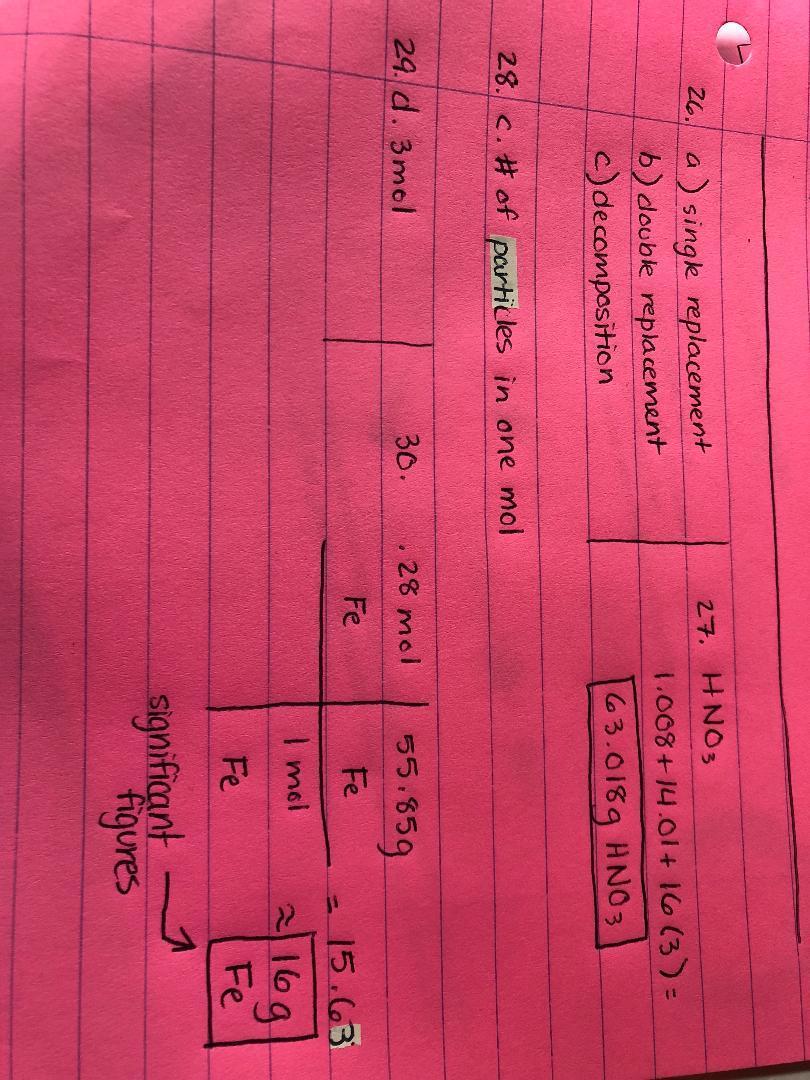 26. a) single replacement
b) double replacement
c) decomposition
27. HNO3
1.008 + 14.01 + 16(3) =
63.018g HNO3
28. c. # of particles in one mol
29. d. 3mol
30. .28 mol Fe | 55.85g Fe
1 mol Fe
= 15.63
≈ 16g Fe
significant figures